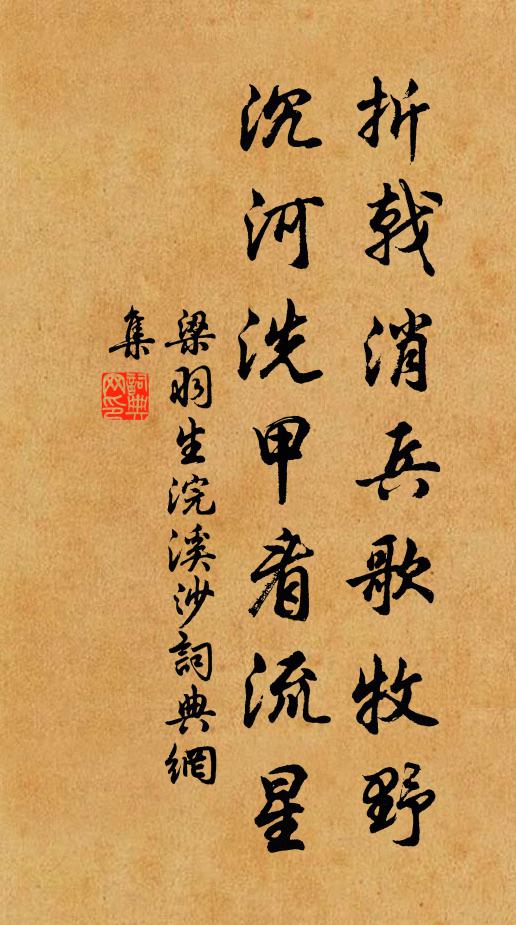 折戟消兵歌牧野
沉河洗甲看流星
梁羽生浣溪沙詞典網
集
詞典
网印